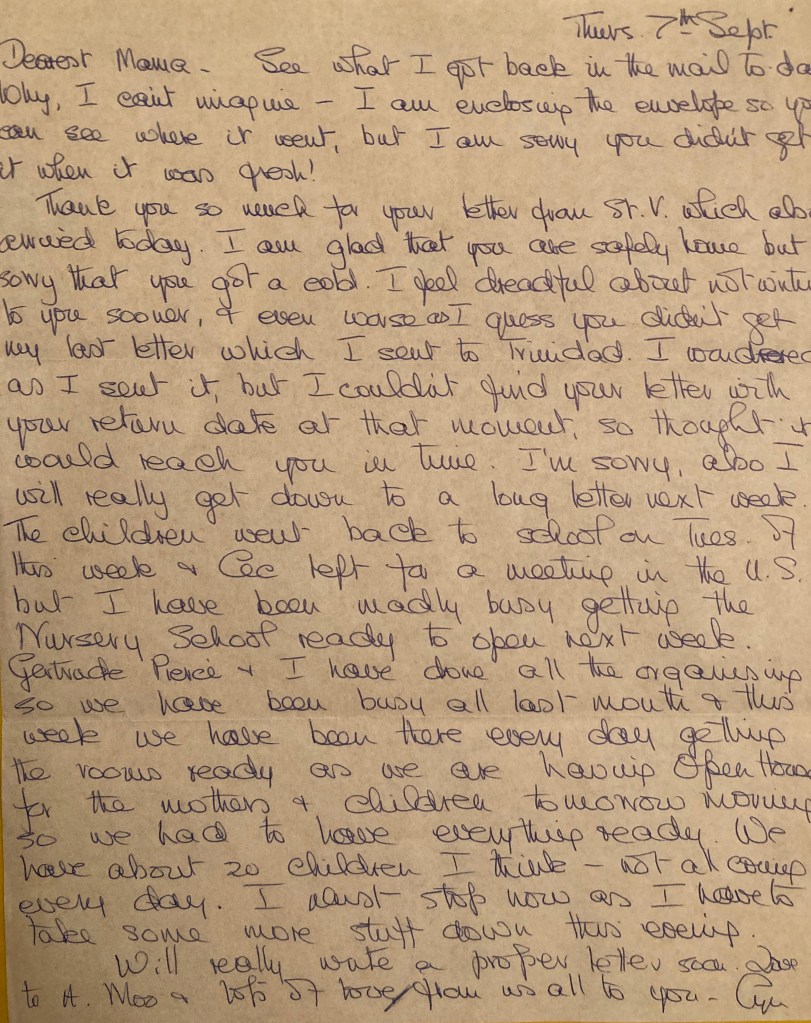 Thurs. 7th Sept.
Dearest Mama - See what I got back in the mail to-da
Why, I can't imagine - I am enclosing the envelope so yo
can see where it went, but I am sorry you didn't get
it when it was fresh!
Thank you so much for your letter from St. V. which also
arrived today. I am glad that you are safely home but
sorry that you got a cold. I feel dreadful about not writi
to you sooner, & even worse as I guess you didn't get
my last letter which I sent to Trinidad. I wondered
as I sent it, but I couldn't find your letter with
your return date at that moment, so thought it
would reach you in time. I'm sorry, also I
will really get down to a long letter next week.
The children went back to school on Tues. of
this week & Cec left for a meeting in the U.S.
but I have been madly busy getting the
Nursery School ready to open next week.
Gertrude Pierce & I have done all the organising
so we have been busy all last month & this
week we have been there every day getting
the rooms ready as we are having Open House
for the mothers & children tomorrow morning
so we had to have everything ready. We
have about 20 children I think - not all coming
every day. I must stop now as I have to
take some more stuff down this evening.
Will really write a proper letter soon. Love
to A. Moo & lots of love from us all to you -